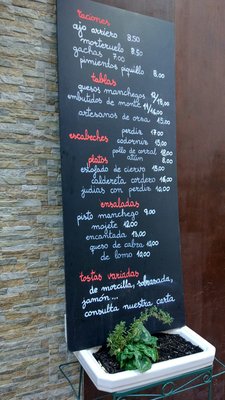 raciones
ajo arriero 8.50
morteruelo 8.50
gachas 7.00
pimientos piquillo 8.00
tablas
quesos manchegos 9/18,00
embutidos de monte 14/16.00
artesanos de orsa 15,00
perdiz 17.00
escabeches codorniz 15,00
pollo de corral 12.00
platos atún 8.00
estofado de ciervo 13.00
caldereta cordero 16.00
judías con perdiz 10.00
ensaladas
pisto manchego 9.00
mojete 12.00
encantada 13.00
queso de cabra 12,00
de lomo 10.00
tostas variadas
de morcilla, sobrasada,
jamón...
consulta nuestra carta